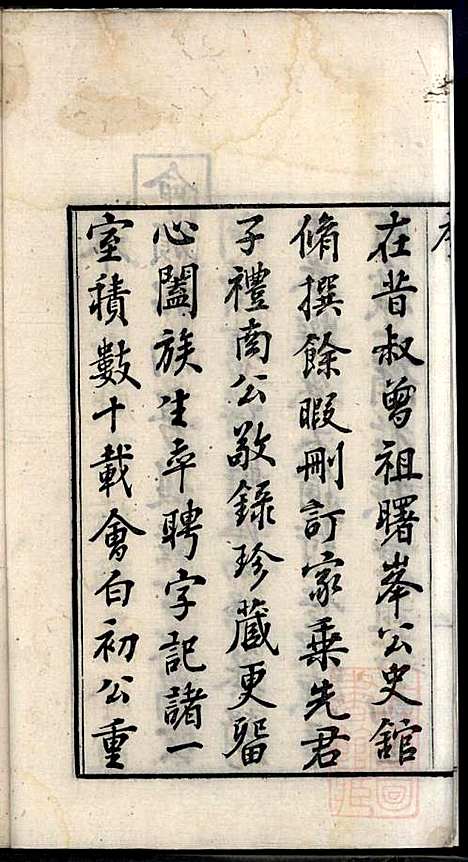 在昔叔曾祖曙峯公史館
脩撰餘暇刪訂家乗先君
子禮南公敬錄珍藏更留
心闔族生卒聘字記諸一
室積數十載會白初公重